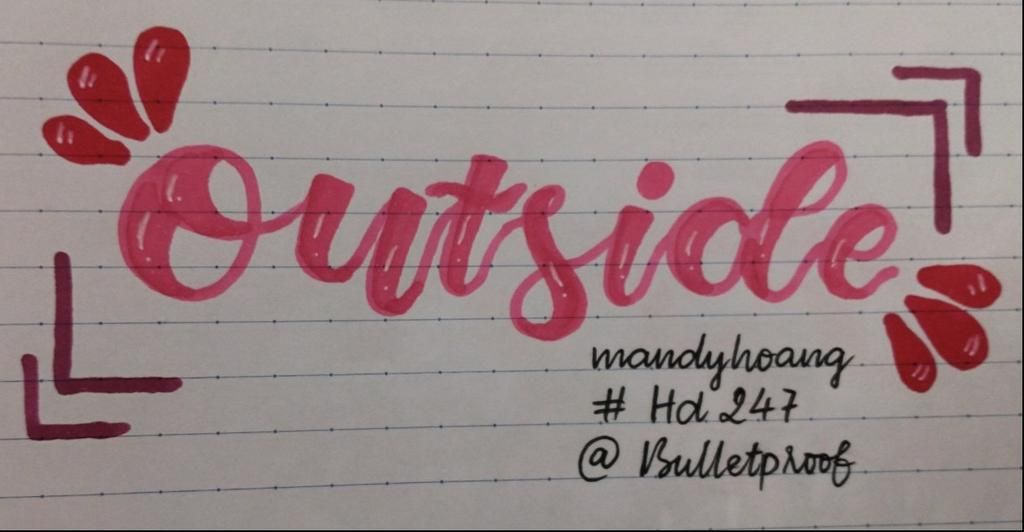 Outside
mandyhoang
# Hd 247
@ Bulletproof